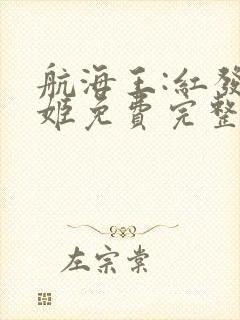 航海王:紅發
姬免費完整
左宗棠